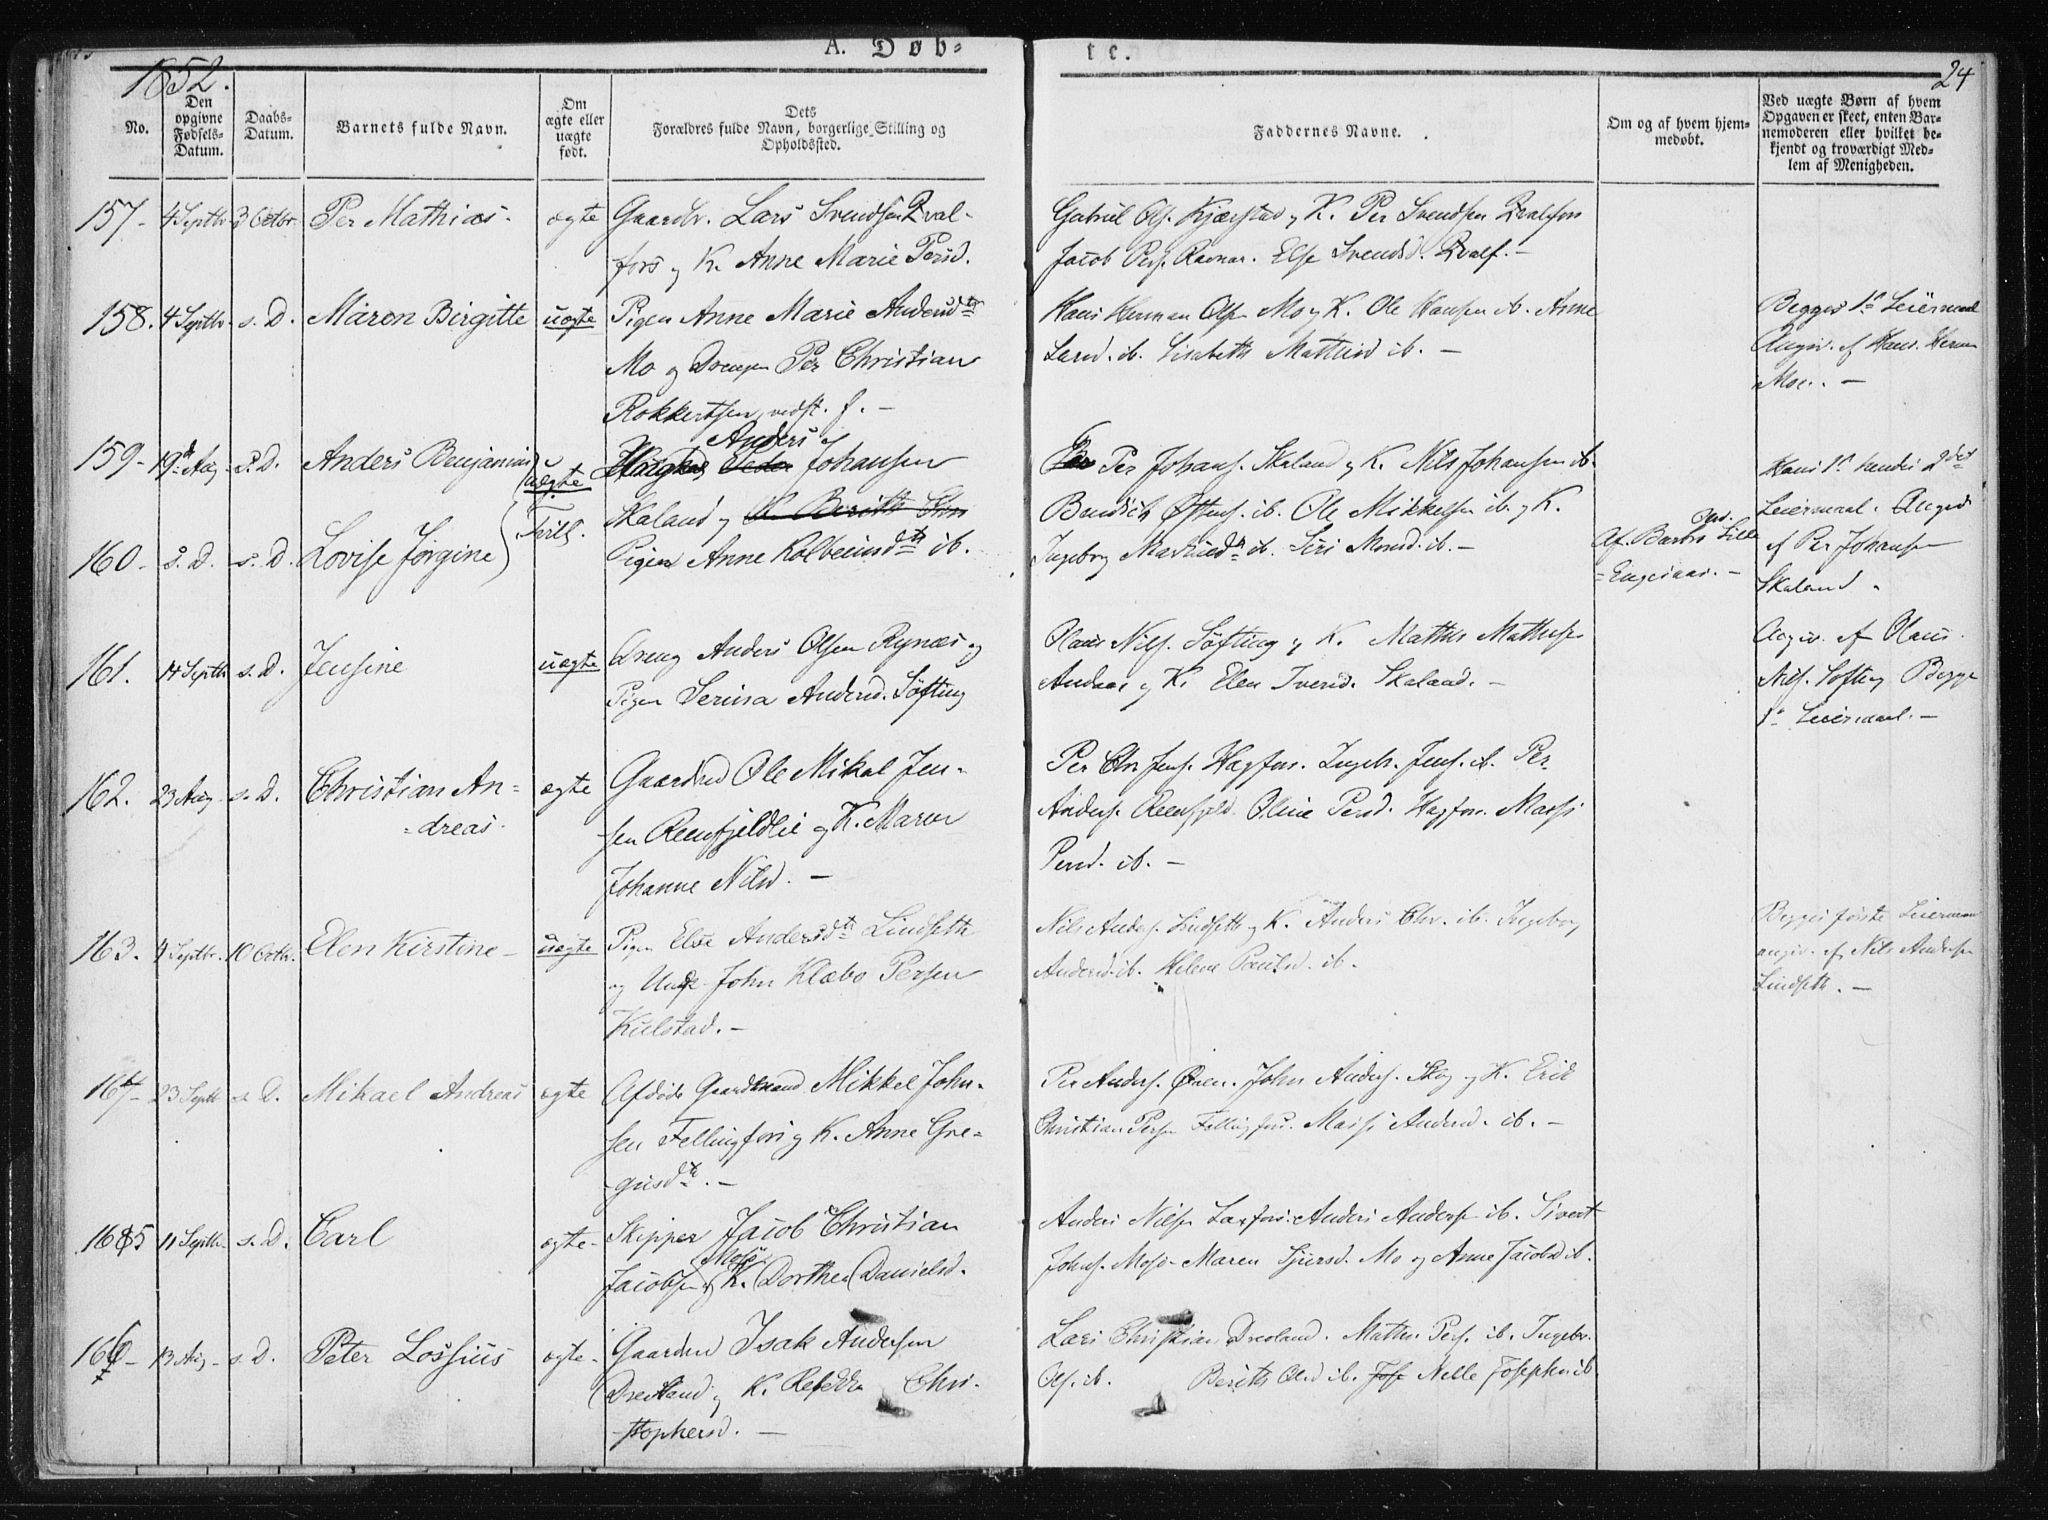 A. Døb-
te.
1852.
24
No.
Den opgivne Fødsels-Datum.
Daabs-Datum.
Barnets fulde Navn.
Om ægte eller uægte født.
Dets Forældres fulde Navn, borgerlige Stilling og Opholdssted.
Faddernes Navne.
Om og af hvem hjem-medøbt.
Ved uægte Børn af hvem Opgaven er skeet, enten Bar-nemoderen eller hvilket be-kjendt og troværdigt Med-lem af Menigheden.
157- 4 Septbr 3 Octbr. Per Mathias. ægte Gaardbr. Lars Svendsen Qval-
fors og K. Anne Marie Persd.
Gabriel Ols. Kjærstad og K. Per Svendsen Qvalfors
Jacob Pers. Ravnaa. Else Svendsd. Qvalf. -
158. 4 Septbr. s. D. Maren Birgitte uægte Pigen Anne Marie Andersdtr
Mo og Drengen Per Christian
Rokkertsen, vedst. f. -
Hans Herman Olsen Mo og K. Ole Hansen ib. Anne
Larsd. ib. Lisabeth Mathisd ib. -
Begges 1ste Leiermaal
Angiv. af Hans Herm
Moe. -
159- 19de Aug s. D. Anders Benjamin uægte Anders Johansen
Skaland og
Per Johans. Skaland og K. Nils Johansen ib.
Bendich Ofters. ib. Ole Mikkelsen ib. og K.
160- s. D. s. D. Lovise Jørgine Tvill. Pigen Anne Kolbeinsdtr ib.
Ingeborg Martinsdtr ib. Siri Monsd. ib. -
Af. Barbro Lille
=Engesaas. -
Hans 1ste hendes 2det
Leiermaal. Angivet
af Per Johansen
Skaland.
161. 14 Septbr s. D. Jensine uægte Dreng Anders Olsen Rynæs og
Pigen Serina Andersd. Søfting
Olaus Nils. Søfting og K. Mathis Mathisen
Andaas og K. Elen Iversd. Skaland. -
Angiv. af Olaus
Nils. Søfting Begges
1ste Leiermaal. -
162. 23 Aug s. D. Christian An-
=dreas. ægte Gaardmd Ole Mikal Jen-
sen Reenfjeldlie og K. Maren
Johanne Nilsd. -
Per Chr Jens. Hagfors. Ingeb. Jens. ib. Per
Anders. Reenfjeld. Oline Persd. Hagfors. Massi
Persd. ib. -
163. 4 Septbr. 10 Octbr. Elen Kirstine - uægte Pigen Else Andersdtr Lindseth
og Ungk. John Klæbo Persen
Kulstad. -
Nils Anders. Lindseth og K. Anders Chr. ib. Ingeborg
Andersd. ib. Helene Paulsd. ib.
Begges første Leiermaal
angiv. af Nils Andersen
Lindseth. -
164- 23 Septbr s. D. Mikael Andreas ægte Afdøde Gaardmand Mikkel John-
sen Fellingfors og K. Anne Gre-
gusdtr. -
Per Anders. Øien. John Anders. Skog og K. Erik
Christian Persen Fellingfors. Massi Andersd. ib. -
165 11 Septbr s. D. Carl ægte- Skipper Jacob Christian
Mosø
Jacobsen og K. Dorthea Danielsd.
Anders Nilsen Laxfors. Anders Andersen ib. Sivert
Johns. Mosø. Maren Sjursd. Mo og Anne Jacobsd ib.
166- 13 Aug- s. D. Peter Lossius ægte- Gaardm Isak Andersen
Drevland og K. Rebekka Chri-
stophersd. -
Lars Christian Drevland. Mathis Pers. ib. Ingebr.
Ols. ib. Berith Olsd ib. Nelle Josephs ib.